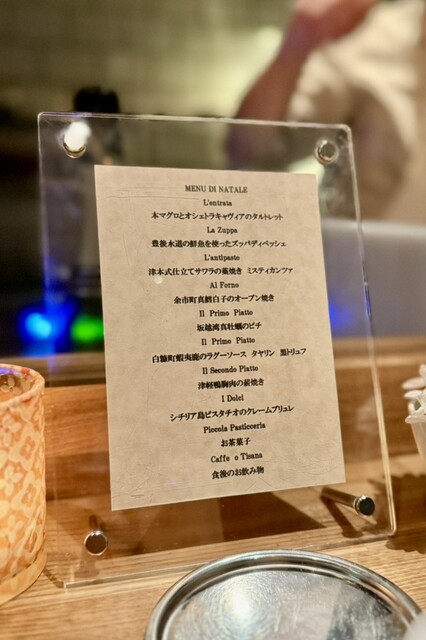 MENU DI NATALE
L'entrata
本マグロとオシェトラキャヴィアのタルトレット
La Zuppa
豊後水道の鮮魚を使ったズッパディペッシェ
L'antipasto
津本式仕立てサワラの藁焼き ミスティカンツァ
Al Forno
余市町真鱈白子のオーブン焼き
Il Primo Piatto
坂越湾真牡蠣のピチ
Il Primo Piatto
白糠町蝦夷鹿のラグーソース タヤリン 黒トリュフ
Il Secondo Piatto
津軽鴨胸肉の薪焼き
I Dolci
シチリア島ピスタチオのクレームブリュレ
Piccola Pasticceria
お茶菓子
Caffe o Tisana
食後のお飲み物